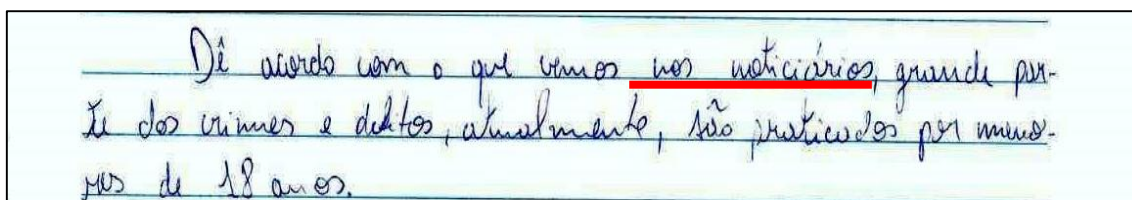 Dê acordo com o que vemos nos noticiários, grande par-
te dos crimes e delitos, atualmente, são praticados por meno-
res de 18 anos.